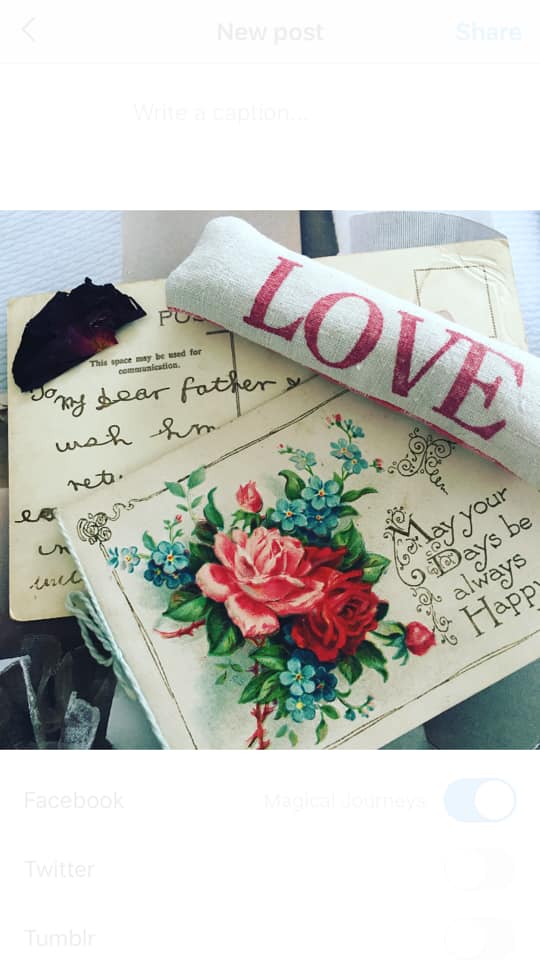 New post
Share
Write a caption...
LOVE
This space may be used for
communication.
To my Dear father
wish him
May your
Days be
always
Happy
Facebook
Magical Journeys
Twitter
Tumblr